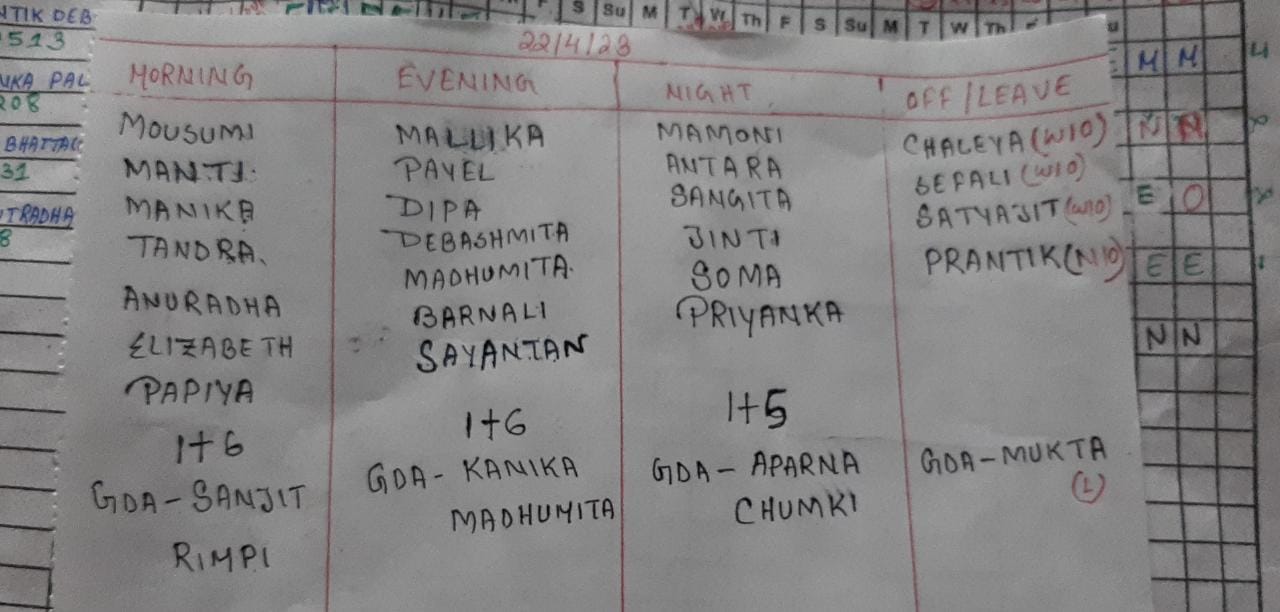 S Su M T W Th F S Su M T W Th
NTIK DEB
513
NKA PAL
208
BHATTAC
31
TRADHA
8
22/4/23
MORNING
MOUSUMI
MANTI
MANIKA
TANDRA
ANURADHA
ELIZABETH
PAPIYA
1+6
GDA - SANJIT
RIMPI
EVENING
MALLIKA
PAYEL
DIPA
DEBASHMITA
MADHUMITA
BARNALI
SAYANTAN
1+6
GDA - KANIKA
MADHUMITA
NIGHT
MAMONI
ANTARA
SANGITA
JINTI
SOMA
PRIYANKA
1+5
GDA - APARNA
CHUMKI
OFF/LEAVE
CHALEYA (W/O)
SEFALI (W/O)
SATYAJIT (W/O)
PRANTIK (N/O)
GDA - MUKTA
(L)
M M
N N
E O
E E
N N